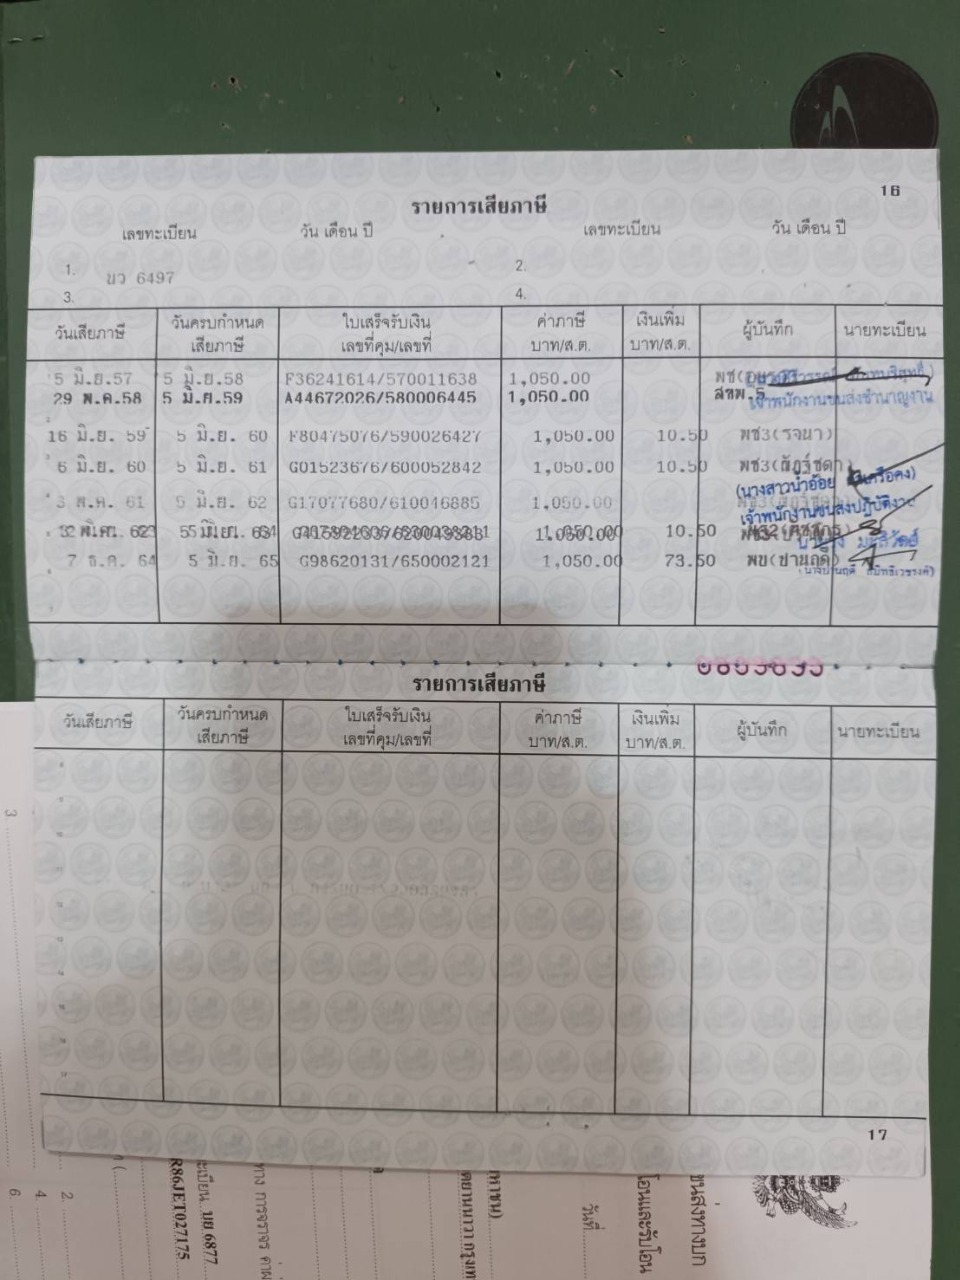 16
รายการเสียภาษี
เลขทะเบียน วัน เดือน ปี เลขทะเบียน วัน เดือน ปี
1. บว 6497 2.
3. 4.
วันเสียภาษี วันครบกำหนดเสียภาษี ใบเสร็จรับเงิน เลขที่คุม/เลขที่ ค่าภาษี บาท/ส.ต. เงินเพิ่ม บาท/ส.ต. ผู้บันทึก นายทะเบียน
5 มิ.ย.57 5 มิ.ย.58 F36241614/570011638 1,050.00
29 พ.ค.58 5 มิ.ย.59 A44672026/580006445 1,050.00 สขพ.5
เจ้าพนักงานขนส่งชำนาญงาน
16 มิ.ย. 59 5 มิ.ย. 60 F80475076/590026427 1,050.00 10.50 พช3(รจนา)
6 มิ.ย. 60 5 มิ.ย. 61 G01523676/600052842 1,050.00 10.50
3 พ.ค. 61 5 มิ.ย. 62 G17077680/610046885 1,050.00
เจ้าพนักงานขนส่งปฏิบัติงาน
1,050.00 10.50
7 ธ.ค. 64 5 มิ.ย. 65 G98620131/650002121 1,050.00 73.50 พข(ปานฤดี)
0803699
รายการเสียภาษี
วันเสียภาษี วันครบกำหนดเสียภาษี ใบเสร็จรับเงิน เลขที่คุม/เลขที่ ค่าภาษี บาท/ส.ต. เงินเพิ่ม บาท/ส.ต. ผู้บันทึก นายทะเบียน
17
ขนส่งทางบก
โอนและรับโอน
วันที่
หาชน)
ทาง การจราจร
ะเบียน บย 6877
R86JET027175
2.
4
6
3